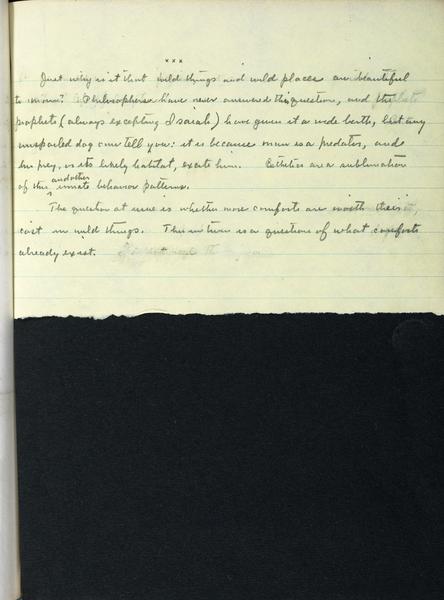 x x x
Just why is it that wild things and wild places are beautiful
to man? Philosophers have never answered this question, and the
prophets (always excepting Isaiah) have given it a wide berth, but any
unspoiled dog can tell you: it is because man is a predator, and
his prey, or its likely habitat, excite him. Esthetics are a sublimation
of this and other innate behavior patterns.
The question at issue is whether more comforts are worth their
cost in wild things. This in turn is a question of what comforts
already exist.